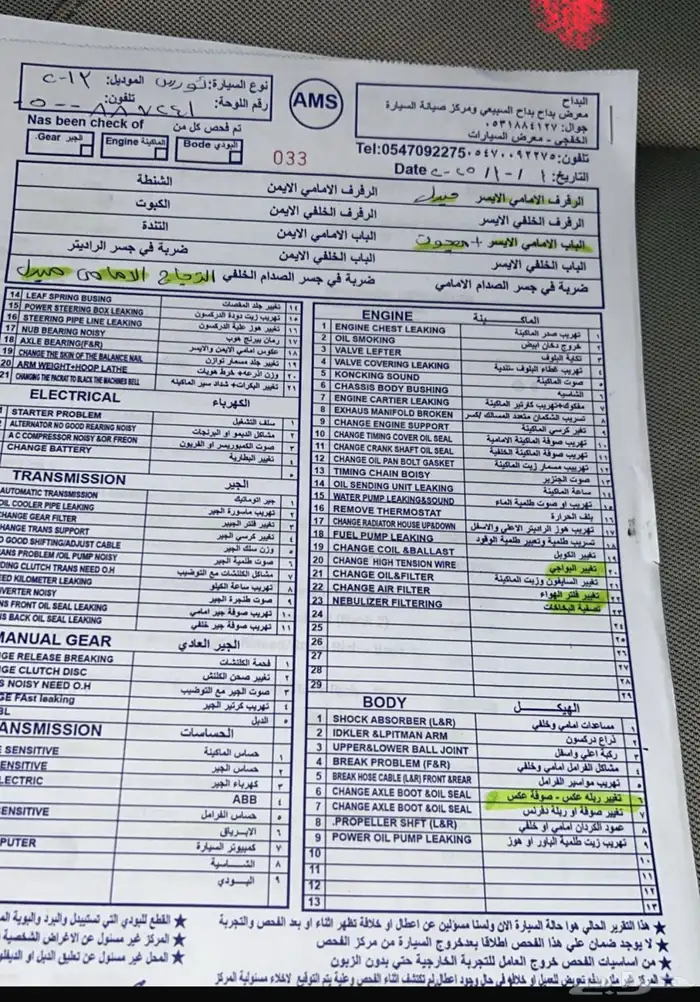 البداح
معرض بداح بداح السبيعي ومركز صيانة السيارة
جوال: ٠٥٣١٨٨٤١٢٧
الخفجي - معرض السيارات
AMS
نوع السيارة: تورس الموديل: ٢٠١٣
رقم اللوحة: تلفون:
تلفون: ٠٥٤٧٠٩٢٢٧٥ Tel:0547092275
التاريخ: Date
033
تم فحص كل من Nas been check of
البودي Bode
الماكينة Engine
الجير Gear.
الرفرف الامامي الايسر مبدل الرفرف الامامي الايمن الشنطة
الرفرف الخلفي الايسر الرفرف الخلفي الايمن الكبوت
الباب الامامي الايسر + معجون الباب الامامي الايمن التندة
الباب الخلفي الايسر الباب الخلفي الايمن ضربة في جسر الراديتر
ضربة في جسر الصدام الامامي ضربة في جسر الصدام الخلفي الزجاج الامامي مبدل
14 LEAF SPRING BUSING تغيير جلد المقصات ١٤
15 POWER STEERING BOX LEAKING تهريب زيت دودة الدركسون ١٥
16 STEERING PIPE LINE LEAKING تغيير هوز علبة الدركسون ١٦
17 NUB BEARING NOISY رمان بيرنج هوب ١٧
18 AXLE BEARING(F&R) عكوس امامي الايمن والايسر ١٨
19 CHANGE THE SKIN OF THE BALANCE NAIL تغيير جلد مسمار توازن ١٩
20 ARM WEIGHT+HOOP LATHE وزن اذرعه + خرط هوبات ٢٠
21 CHANGING THE PACKRAT TO BLACK THE MACHINES BELL تغيير البكرات+ شداد سير الماكينه ٢١
ELECTRICAL الكهرباء
1 STARTER PROBLEM سلف التشغيل ١
ALTERNATOR NO GOOD REARING NOISY مشاكل الدينمو او البرنجات ٢
A C COMPRESSOR NOISY &OR FREON صوت الكمبريسر او الفريون ٣
CHANGE BATTERY تغيير البطارية ٤
٥
TRANSMISSION الجير
AUTOMATIC TRANSMISSION جير اتوماتيك ١
OIL COOLER PIPE LEAKING تهريب ماسورة الجير ٢
CHANGE GEAR FILTER تغيير فلتر الجيير ٣
HANGE TRANS SUPPORT تغيير كرسي الجير ٤
O GOOD SHIFTING/ADJUST CABLE وزن سلك الجير ٥
ANS PROBLEM /OIL PUMP NOISY صوت طلمبة الجير ٦
DING CLUTCH TRANS NEED O.H مشاكل الكلتشات مع التوضيب ٧
ED KILOMETER LEAKING تهريب ساعة الكيلو ٨
VERTER NOISY صوت طنجرة الجير ٩
NS FRONT OIL SEAL LEAKING تهريب صوفة جير امامي ١٠
NS BACK OIL SEAL LEAKING تهريب صوفة جير خلفي ١١
MANUAL GEAR الجير العادي
GE RELEASE BREAKING فحمة الكلتشات ١
GE CLUTCH DISC تغيير صحن الكلتش ٢
S NOISY NEED O.H صوت الجير مع التوضيب ٣
GE FAst leaking تهريب كرتير الجير ٤
BL الدبل ٥
ANSMISSION الحساسات
E SENSITIVE حساس الماكينة ١
ENSITIVE حساس الجير ٢
LECTRIC كهرباء الجير ٣
ABB ٤
ENSITIVE حساس الفرامل ٥
الايرباق ٦
PUTER كمبيوتر السيارة ٧
الشاسية ٨
البودي ٩
ENGINE الماكينة
1 ENGINE CHEST LEAKING تهريب صدر الماكينة ١
2 OIL SMOKING خروج دخان ابيض ٢
3 VALVE LEFTER تكاية البلوف ٣
4 VALVE COVERING LEAKING تهريب غطاء البلوف ستندية ٤
5 KONCKING SOUND صوت الماكينة ٥
6 CHASSIS BODY BUSHING الشاسيه ٦
7 ENGINE CARTIER LEAKING مفكوك+تهريب كارتير الماكينة ٧
8 EXHAUS MANIFOLD BROKEN تسريب الشكمان متعدد المسالك /كسر ٨
9 CHANGE ENGINE SUPPORT تغير كرسي الماكينة ٩
10 CHANGE TIMING COVER OIL SEAL تهريب صوفة الماكينة الامامية ١٠
11 CHANGE CRANK SHAFT OIL SEAL تهريب صوفة الماكينة الخلفية ١١
12 CHANGE OIL PAN BOLT GASKET تهريب مسمار زيت الماكينة ١٢
13 TIMING CHAIN BOISY صوت الجنزير ١٣
14 OIL SENDING UNIT LEAKING ساعة الماكينة ١٤
15 WATER PUMP LEAKING&SOUND تهريب او صوت طلمبة الماء ١٥
16 REMOVE THERMOSTAT بلف الحرارة ١٦
17 CHANGE RADIATOR HOUSE UP&DOWN تهريب هوز الراديتر الاعلى والاسفل ١٧
18 FUEL PUMP LEAKING تسريب طلمبة وتعبير طلمبة الوقود ١٨
19 CHANGE COIL &BALLAST تغيير الكويل
20 CHANGE HIGH TENSION WIRE تغيير البواجي ٢٠
21 CHANGE OIL&FILTER تغيير السايفون وزيت الماكينة ٢١
22 CHANGE AIR FILTER تغيير فلتر الهواء ٢٢
23 NEBULIZER FILTERING تصفية البخاخات ٢٣
24
25 ٢٥
26 ٢٦
27 ٢٧
28 ٢٨
29 ٢٩
BODY الهيكل
1 SHOCK ABSORBER (L&R) مساعدات امامي وخلفي ١
2 IDKLER &LPITMAN ARM ذراع دركسون ٢
3 UPPER&LOWER BALL JOINT ركبة اعلي واسفل ٣
4 BREAK PROBLEM (F&R) مشاكل الفرامل امامي وخلفي ٤
5 BREAK HOSE CABLE (L&R) FRONT &REAR تهريب مواسير الفرامل ٥
6 CHANGE AXLE BOOT &OIL SEAL تغيير ربله عكس - صوفة عكس ٦
7 CHANGE AXLE BOOT &OIL SEAL تغيير صوفة او ربلة دفرنس ٧
8 .PROPELLER SHFT (L&R) عمود الكردان امامي او خلفي ٨
9 POWER OIL PUMP LEAKING تهريب زيت طلمبة الباور او هوز ٩
10 ١٠
11 ١١
12 ١٢
13 ١٣
★ هذا التقرير الحالي هوا حالة السيارة الان ولسنا مسؤلين عن اعطال او خلافة تظهر اثناء او بعد الفحص والتجربة
★ لا يوجد ضمان علي هذا الفحص اطلاقا بعدخروج السيارة من مركز الفحص
★ من اساسيات الفحص خروج العامل للتجربة الخارجية حتي بدون الزبون
★ القطع للبودي التي تستبدل والبرد والبوية
★ المركز غير مسئول عن الاغراض الشخصية
★ المحل غير مسئول عن تعليق الدبل او